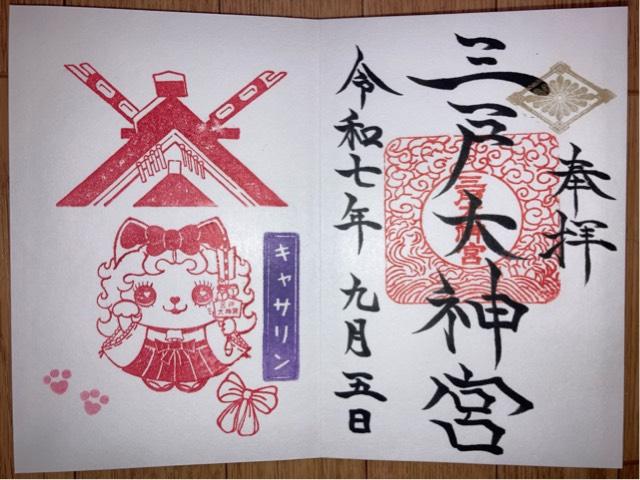 奉拝
三戸大神宮
三戸大神宮
令和七年 九月五日
キャサリン
三戸
大神宮